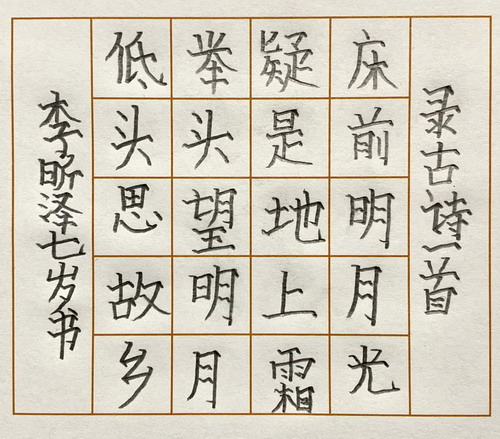 录古诗一首
床前明月光
疑是地上霜
举头望明月
低头思故乡
李昕泽七岁书